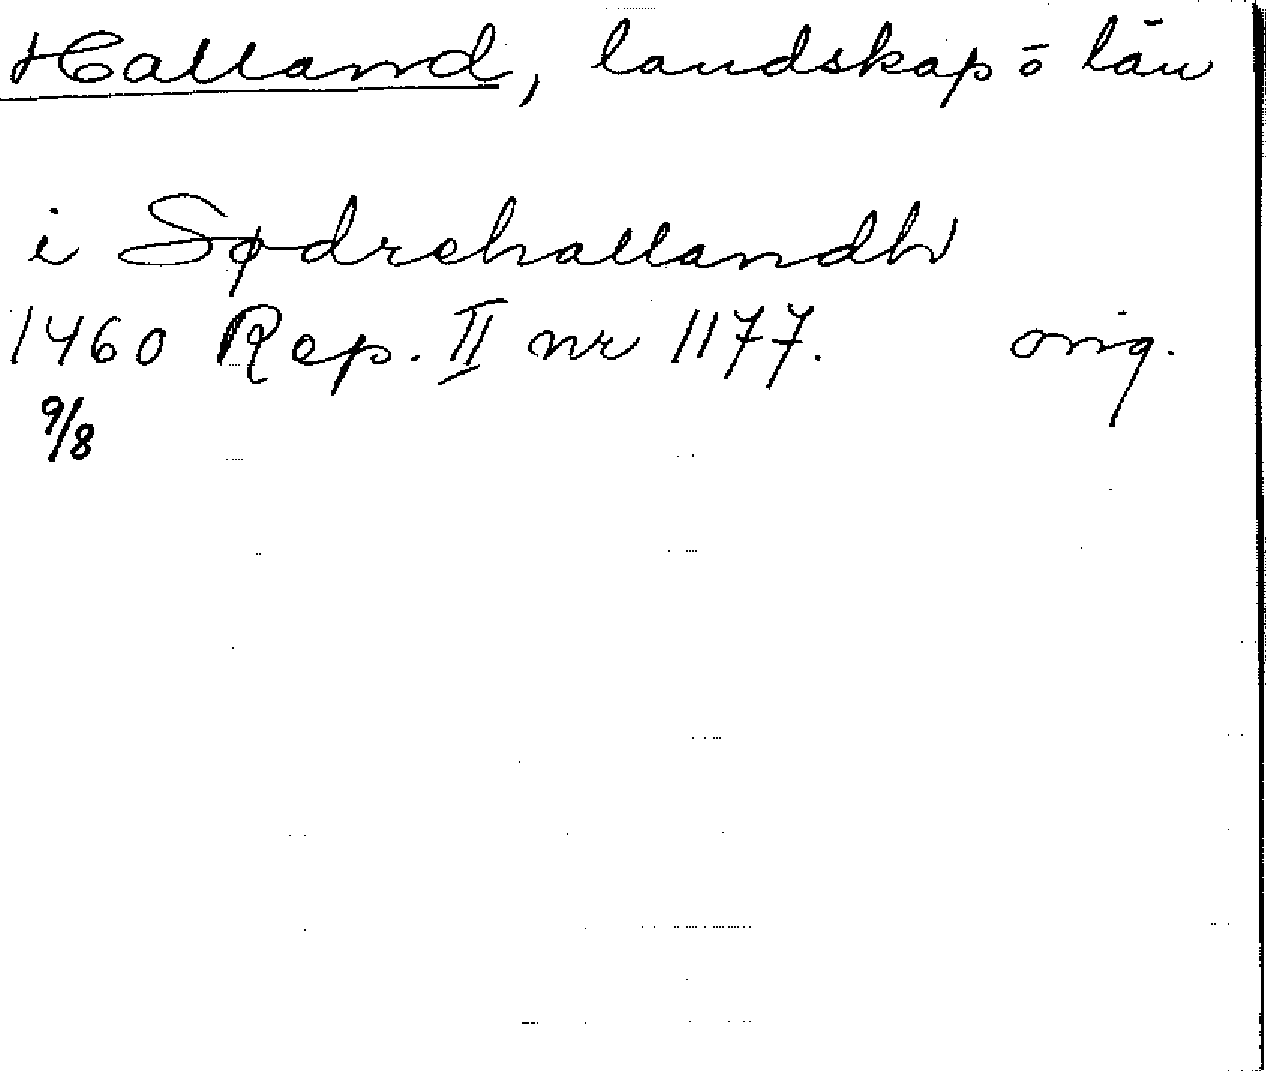 Halland, landskap ō län
i Sødrehallandh
1460 Rep. II nr 1177. orig.
9/8